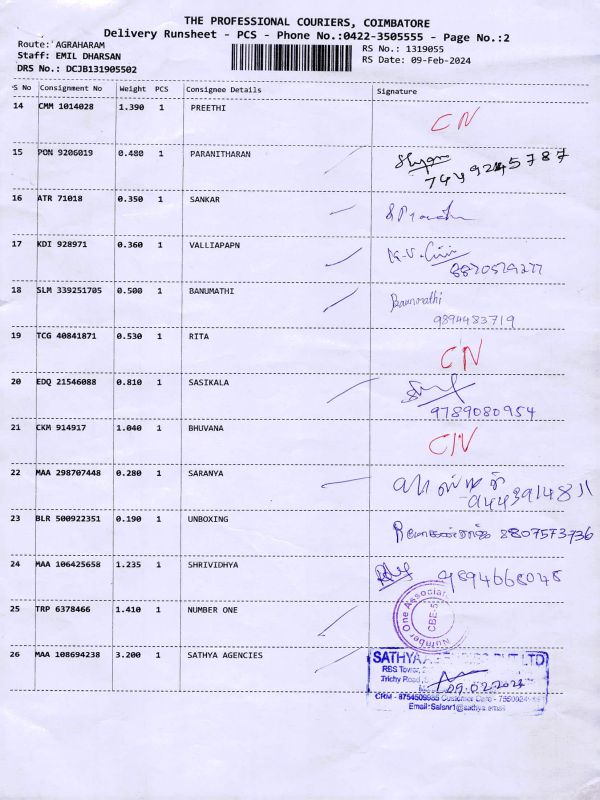 THE PROFESSIONAL COURIERS, COIMBATORE
Delivery Runsheet - PCS - Phone No.:0422-3505555 - Page No.:2
Route: AGRAHARAM
RS No.: 1319055
Staff: EMIL DHARSAN
RS Date: 09-Feb-2024
DRS No.: DCJB131905502
S No Consignment No Weight PCS Consignee Details Signature
14 CMM 1014028 1.390 1 PREETHI
CN
15 PON 9206019 0.480 1 PARANITHARAN
7449245787
16 ATR 71018 0.350 1 SANKAR
17 KDI 928971 0.360 1 VALLIAPAPN
18 SLM 339251705 0.500 1 BANUMATHI
Banumathi
9894483719
19 TCG 40841871 0.530 1 RITA
CN
20 EDQ 21546088 0.810 1 SASIKALA
9789080954
21 CKM 914917 1.040 1 BHUVANA
CN
22 MAA 298707448 0.280 1 SARANYA
23 BLR 500922351 0.190 1 UNBOXING
8807573736
24 MAA 106425658 1.235 1 SHRIVIDHYA
9894668048
25 TRP 6378466 1.410 1 NUMBER ONE
Number One Associat
CBE-5
26 MAA 108694238 3.200 1 SATHYA AGENCIES
SATHYA PVT LTD
RBS Tower,
Trichy Road,
09.02.2024
CRM - Customer Care -